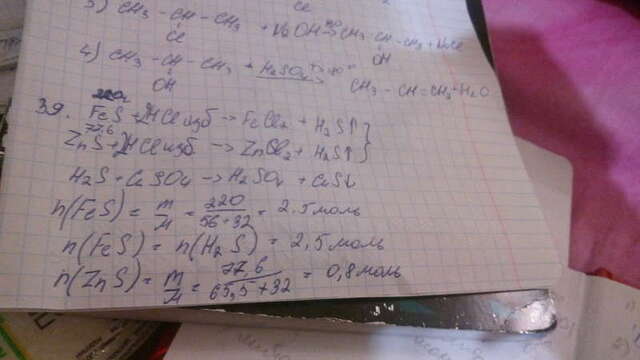 3) CH3 - CH - CH3 + NaOH → CH3 - CH - CH3 + NaCl
Cl
OH
4) CH3 - CH - CH3 + H2SO4 t>140° →
OH
CH3 - CH = CH2 + H2O
39.
FeS + 2HCl изб → FeCl2 + H2S↑ }
77,6
ZnS + 2HCl изб → ZnCl2 + H2S↑ }
H2S + CuSO4 → H2SO4 + CuS↓
n(FeS) = m/M = 220/56+32 = 2.5 моль
n(FeS) = n(H2S) = 2,5 моль
n(ZnS) = m/M = 77,6/65,5+32 = 0,8 моль